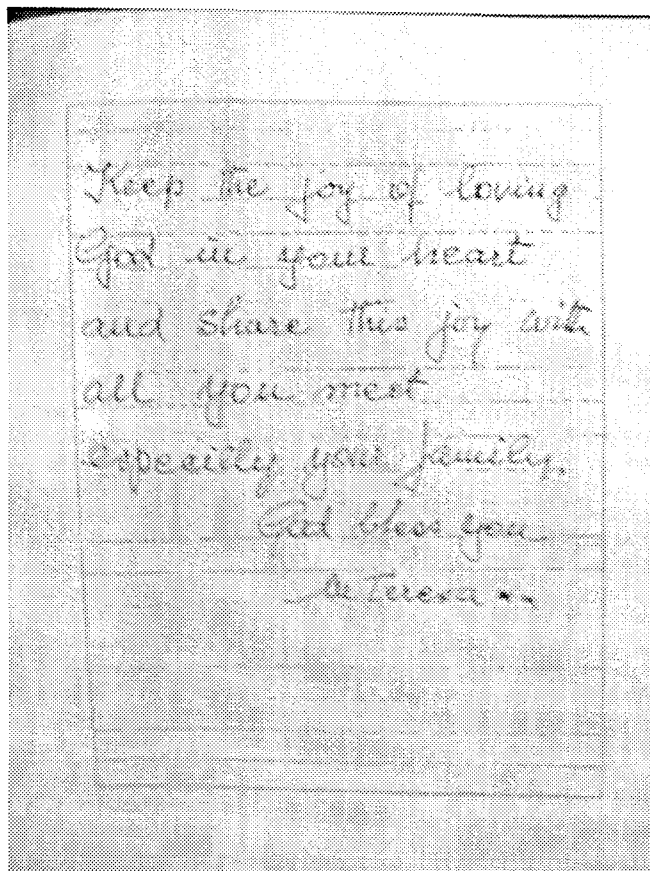 Keep the joy of loving
God in your heart
and share this joy with
all you meet
especially your family.
God bless you
M Teresa